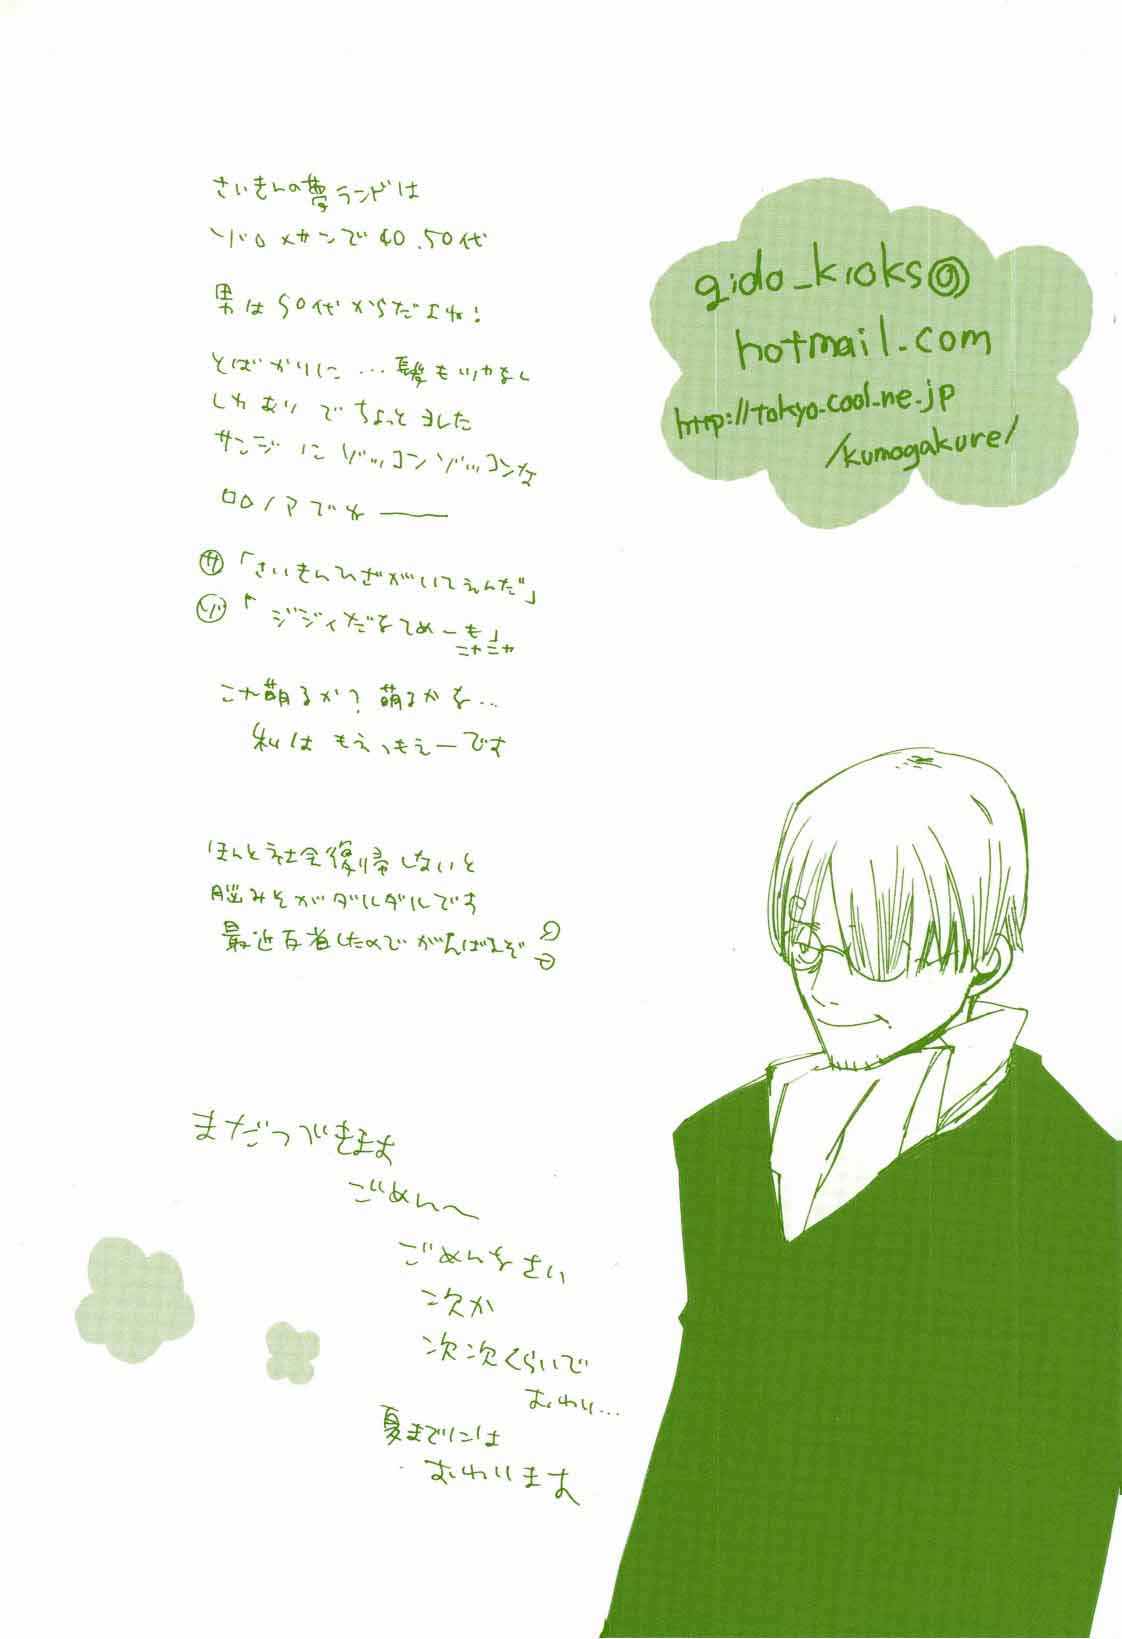 さいきんの夢ランドは
ゾロ×サンで40.50代
男は50代からだよね!
とばかりに…髪もツヤなし
しわありでちょっとヨレた
サンジにゾッコンゾッコンな
ロロノアでねー
サ「さいきんひざがいてえんだ」
ゾ「ジジイだなてめーも」
ニヤニヤ
これ萌るか?萌るかな…
私はもえっもえーです
ほんと社会復帰しないと
脳みそがダルダルです
最近反省したのでがんばるぞ
まだつづきます
ごめん〜
ごめんなさい
次か
次次くらいで
おわり…
夏までには
おわります
gido_kioks@
hotmail.com
http://tokyo.cool.ne.jp
/kumogakure/